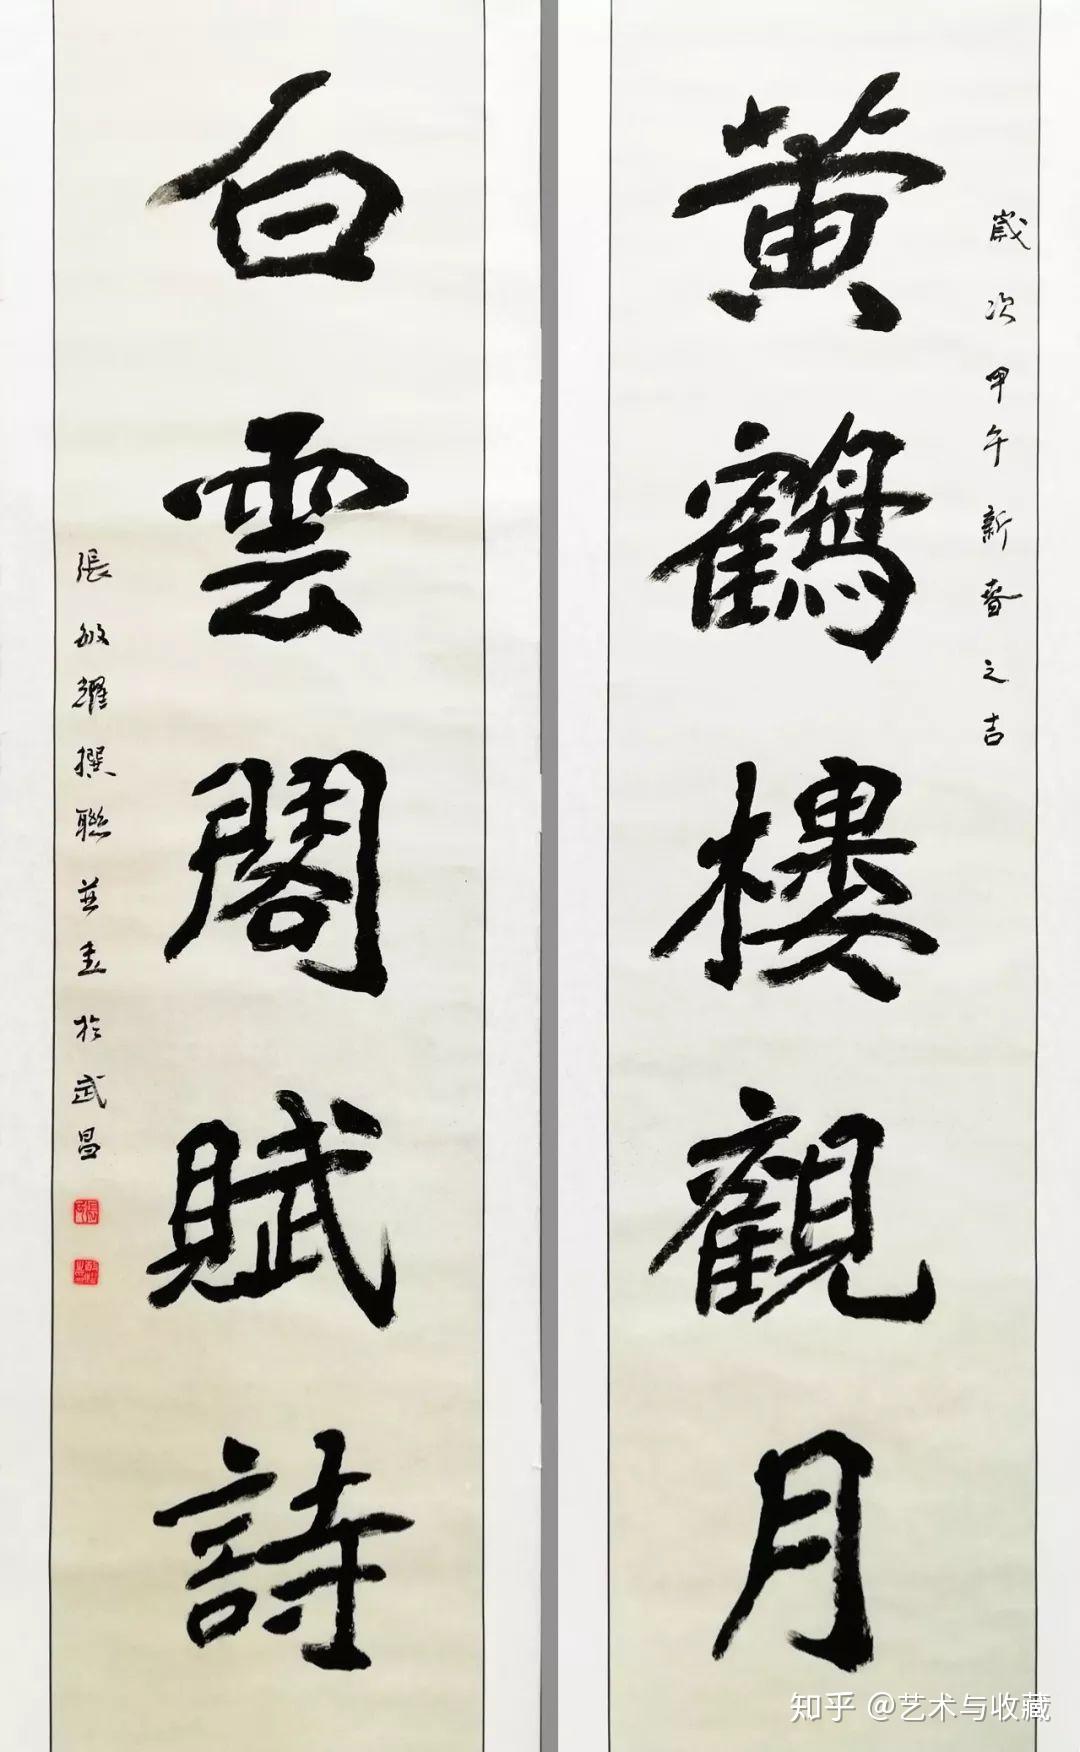 歲次甲午新春之吉
黄鶴樓觀月
白雲閣賦詩
張敏耀撰聯並書於武昌
知乎 @艺术与收藏